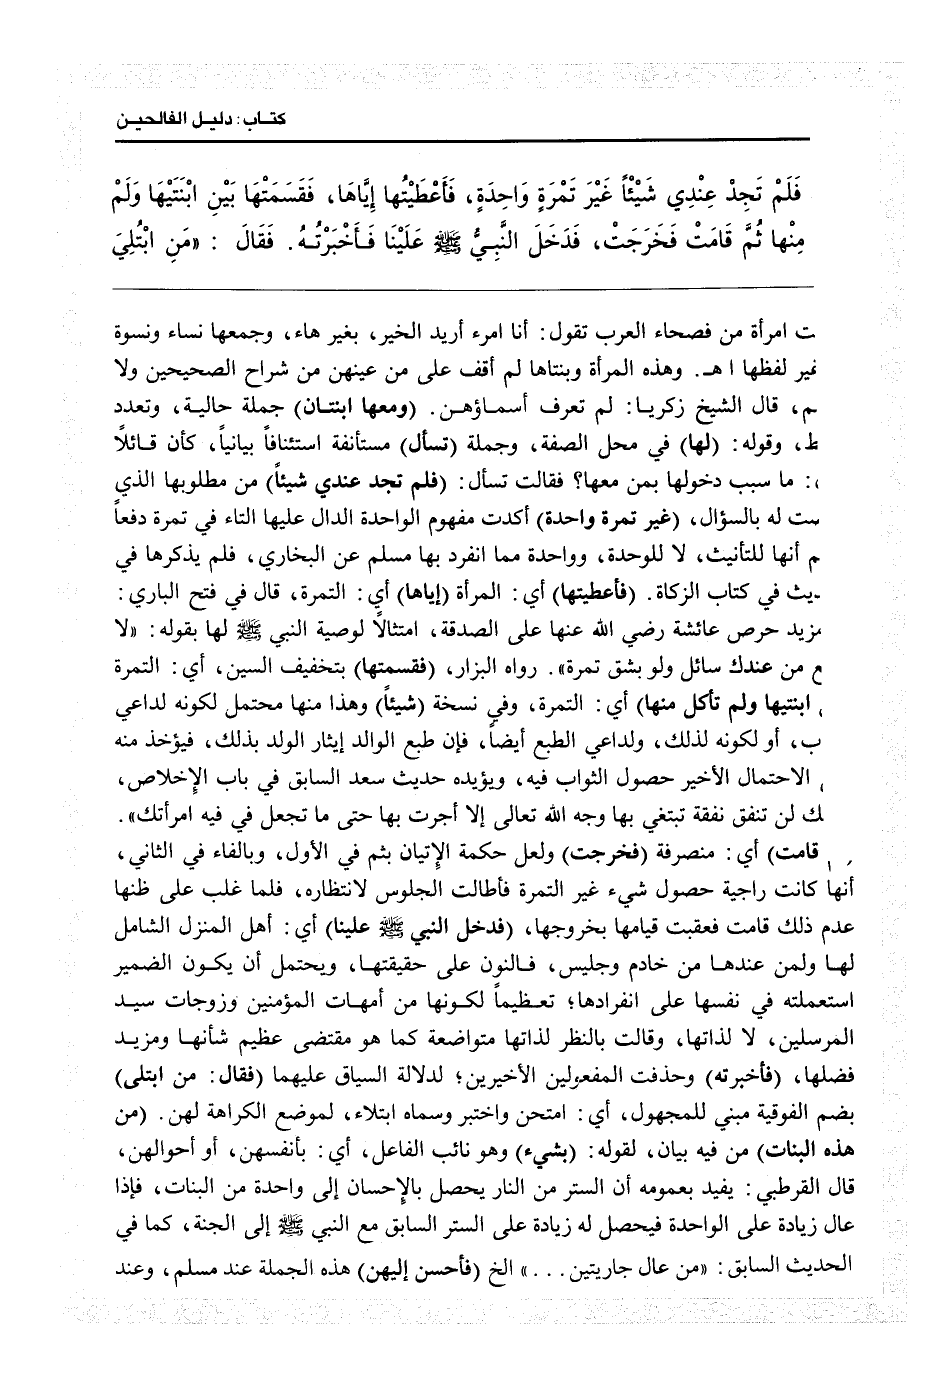 كتاب: دليل الفالحين
فَلَمْ تَجِدْ عِنْدِي شَيْئاً غَيْرَ تَمْرَةٍ وَاحِدَةٍ، فَأَعْطَيْتُها إِيَّاهَا، فَقَسَمَتْهَا بَيْنَ ابْنَتَيْهَا وَلَمْ
مِنْها ثُمَّ قَامَتْ فَخَرَجَتْ، فَدَخَلَ النَّبِيُّ ﷺ عَلَيْنَا فَأَخْبَرْتُهُ. فَقَالَ : «مَنِ ابْتُلِيَ
ت امرأة من فصحاء العرب تقول: أنا امرء أريد الخير، بغير هاء، وجمعها نساء ونسوة
غير لفظها ا هـ. وهذه المرأة وبنتاها لم أقف على من عينهن من شراح الصحيحين ولا
م، قال الشيخ زكريا: لم تعرف أسماؤهن. (ومعها ابنتان) جملة حالية، وتعدد
ط، وقوله: (لها) في محل الصفة، وجملة (تسأل) مستأنفة استئنافاً بيانياً، كأن قائلاً
: ما سبب دخولها بمن معها؟ فقالت تسأل: (فلم تجد عندي شيئاً) من مطلوبها الذي
ست له بالسؤال، (غير تمرة واحدة) أكدت مفهوم الواحدة الدال عليها التاء في تمرة دفعاً
م أنها للتأنيث، لا للوحدة، وواحدة مما انفرد بها مسلم عن البخاري، فلم يذكرها في
ديث في كتاب الزكاة. (فأعطيتها) أي: المرأة (إياها) أي: التمرة، قال في فتح الباري:
مزيد حرص عائشة رضي الله عنها على الصدقة، امتثالاً لوصية النبي ﷺ لها بقوله: «لا
ع من عندك سائل ولو بشق تمرة». رواه البزار، (فقسمتها) بتخفيف السين، أي: التمرة
ابنتيها ولم تأكل منها) أي: التمرة، وفي نسخة (شيئاً) وهذا منها محتمل لكونه لداعي
ب، أو لكونه لذلك، ولداعي الطبع أيضاً، فإن طبع الوالد إيثار الولد بذلك، فيؤخذ منه
الاحتمال الأخير حصول الثواب فيه، ويؤيده حديث سعد السابق في باب الإخلاص،
لك لن تنفق نفقة تبتغي بها وجه الله تعالى إلا أجرت بها حتى ما تجعل في فيه امرأتك».
قامت) أي: منصرفة (فخرجت) ولعل حكمة الإتيان بثم في الأول، وبالفاء في الثاني،
أنها كانت راجية حصول شيء غير التمرة فأطالت الجلوس لانتظاره، فلما غلب على ظنها
عدم ذلك قامت فعقبت قيامها بخروجها، (فدخل النبي ﷺ علينا) أي: أهل المنزل الشامل
لها ولمن عندها من خادم وجليس، فالنون على حقيقتها، ويحتمل أن يكون الضمير
استعملته في نفسها على انفرادها؛ تعظيماً لكونها من أمهات المؤمنين وزوجات سيد
المرسلين، لا لذاتها، وقالت بالنظر لذاتها متواضعة كما هو مقتضى عظيم شأنها ومزيد
فضلها، (فأخبرته) وحذفت المفعولين الأخيرين؛ لدلالة السياق عليهما (فقال: من ابتلى)
بضم الفوقية مبني للمجهول، أي: امتحن واختبر وسماه ابتلاء، لموضع الكراهة لهن. (من
هذه البنات) من فيه بيان، لقوله: (بشيء) وهو نائب الفاعل، أي: بأنفسهن، أو أحوالهن،
قال القرطبي: يفيد بعمومه أن الستر من النار يحصل بالإحسان إلى واحدة من البنات، فإذا
عال زيادة على الواحدة فيحصل له زيادة على الستر السابق مع النبي ﷺ إلى الجنة، كما في
الحديث السابق: «من عال جاريتين...» الخ (فأحسن إليهن) هذه الجملة عند مسلم، وعند